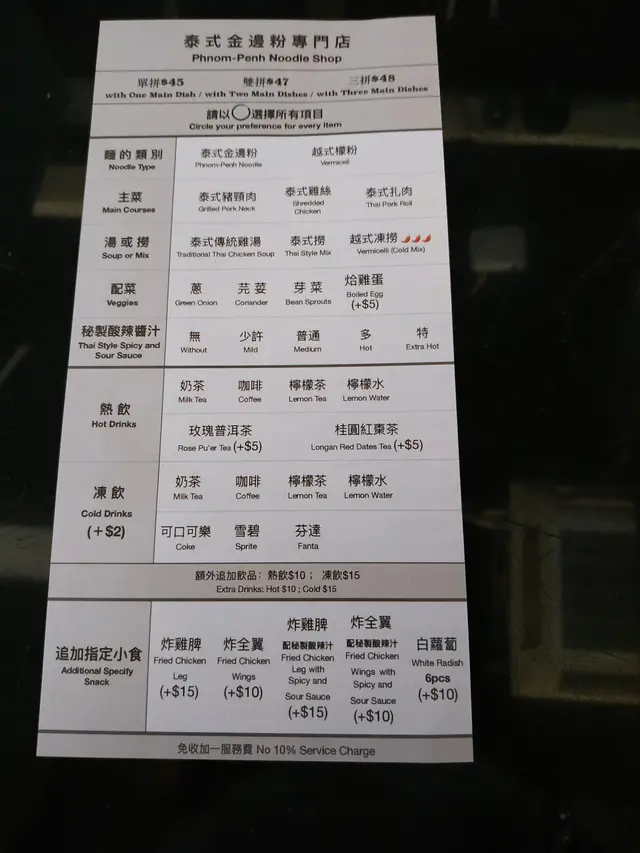 泰式金邊粉專門店
Phnom-Penh Noodle Shop
單拼$45 雙拼$47 三拼$48
with One Main Dish / with Two Main Dishes / with Three Main Dishes
請以◯選擇所有項目
Circle your preference for every item
麵的類別 泰式金邊粉 越式檬粉
Noodle Type Phnom-Penh Noodle Vermiceil
主菜 泰式豬頸肉 泰式雞絲 泰式扎肉
Main Courses Grilled Pork Neck Shredded Chicken Thai Pork Roll
湯或撈 泰式傳統雞湯 泰式撈 越式凍撈
Soup or Mix Traditional Thai Chicken Soup Thai Style Mix Vermicelli (Cold Mix)
配菜 蔥 芫荽 芽菜 烚雞蛋
Veggies Green Onion Coriander Bean Sprouts Boiled Egg
(+$5)
秘製酸辣醬汁 無 少許 普通 多 特
Thai Style Spicy and Sour Sauce Without Mild Medium Hot Extra Hot
熱飲
Hot Drinks
奶茶 咖啡 檸檬茶 檸檬水
Milk Tea Coffee Lemon Tea Lemon Water
玫瑰普洱茶 桂圓紅棗茶
Rose Pu'er Tea (+$5) Longan Red Dates Tea (+$5)
凍飲
Cold Drinks
(+$2)
奶茶 咖啡 檸檬茶 檸檬水
Milk Tea Coffee Lemon Tea Lemon Water
可口可樂 雪碧 芬達
Coke Sprite Fanta
額外追加飲品：熱飲$10； 凍飲$15
Extra Drinks: Hot $10 ; Cold $15
追加指定小食
Additional Specify
Snack
炸雞脾
Fried Chicken
Leg
(+$15)
炸全翼
Fried Chicken
Wings
(+$10)
炸雞脾
配秘製酸辣汁
Fried Chicken
Leg with
Spicy and
Sour Sauce
(+$15)
炸全翼
配秘製酸辣汁
Fried Chicken
Wings with
Spicy and
Sour Sauce
(+$10)
白蘿蔔
White Radish
6pcs
(+$10)
免收加一服務費 No 10% Service Charge